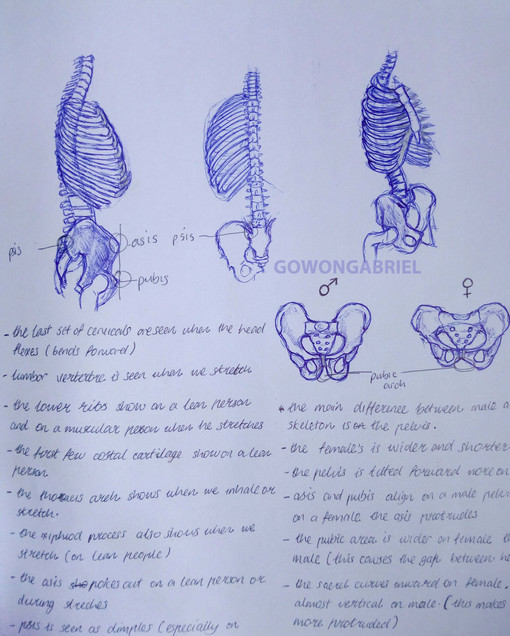 psis
asis
psis
pubis
GOWONGABRIEL
♂
♀
pubic
arch
- the last set of cervicals are seen when the head
flexes (bends forward)
- lumbar vertebre is seen when we stretch
- the lower ribs show on a lean person
and on a muscular person when he stretches
- the first few costal cartilage show on a lean
person
- the thoracus arch shows when we inhale or
stretch.
- the xiphoid process also shows when we
stretch (on lean people)
- the asis pokes out on a lean person or
during streches
- psis is seen as dimples (especially on
* the main difference between male a
skeleton is on the pelvis.
- the female's is wider and shorter
- the pelvis is tilted forward more on
- asis and pubis align on a male pelvi
on a female the asis protrudes
- the pubic area is wider on female th
male (this causes the gap between he
- the sacral curves inward on female.
almost vertical on male. (this makes
more protruded)